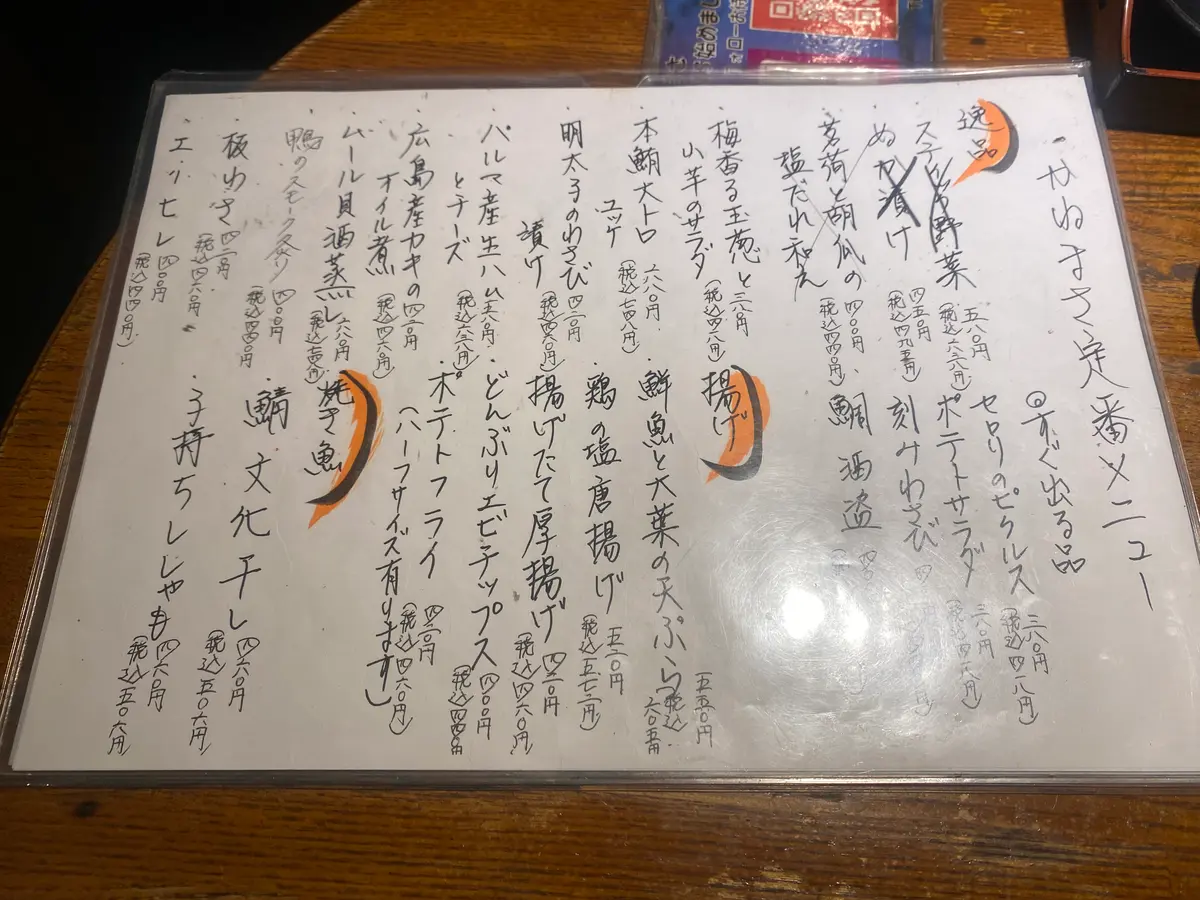 かねまさ定番メニュー
◎すぐ出る品
セロリのピクルス
三八〇円
(税込四一八円)
ポテトサラダ
三八〇円
(税込四一八円)
刻みわさび
鯛酒盗
逸品
スティック野菜
五八〇円
(税込六三八円)
ぬか漬け
四五〇円
(税込四九五円)
茗荷と胡瓜の
塩だれ和え
四〇〇円
(税込四四〇円)
・梅香る玉葱と
山芋のサラダ
三八〇円
(税込四一八円)
・本鮪大トロ
ユッケ
六八〇円
(税込七四八円)
・明太子のわさび
漬け
四二〇円
(税込四六〇円)
・パルマ産生ハム
とチーズ
五八〇円
(税込六三八円)
・広島産カキの
オイル煮
四二〇円
(税込四六〇円)
・ムール貝酒蒸し
六八〇円
・鴨のスモーク
四〇〇円
(税込四四〇円)
・板わさ
四二〇円
(税込四六〇円)
・エリセレ
四〇〇円
(税込四四〇円)
揚げ
・鮮魚と大葉の天ぷら
五五〇円
(税込六〇五円)
・鶏の塩唐揚げ
五二〇円
(税込五七二円)
・揚げたて厚揚げ
四二〇円
(税込四六〇円)
・どんぶりエビチップス
四〇〇円
(税込四四〇円)
・ポテトフライ
四二〇円
(税込四六〇円)
(ハーフサイズ有ります)
焼き魚
・鯖文化干し
四六〇円
(税込五〇六円)
・子持ちししゃも
四六〇円
(税込五〇六円)